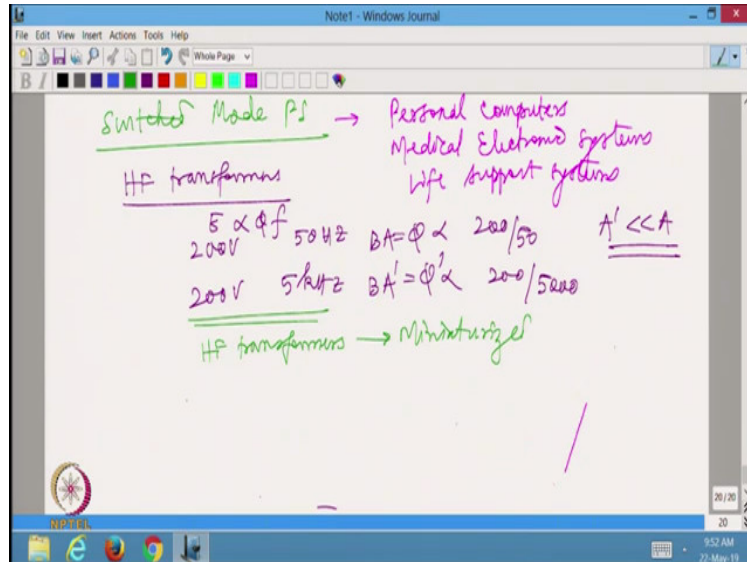 Note1 - Windows Journal
File Edit View Insert Actions Tools Help
Whole Page
B I
Switched Mode PS → Personal Computers
Medical Electronic Systems
Life Support Systems
HF transformers
E ∝ φf
200V 50HZ BA=φ ∝ 200/50 A' << A
200V 5kHZ BA'=φ'∝ 200/5000
HF transformers → Miniaturized
NPTEL
20/20
20
9:52 AM
22-May-19